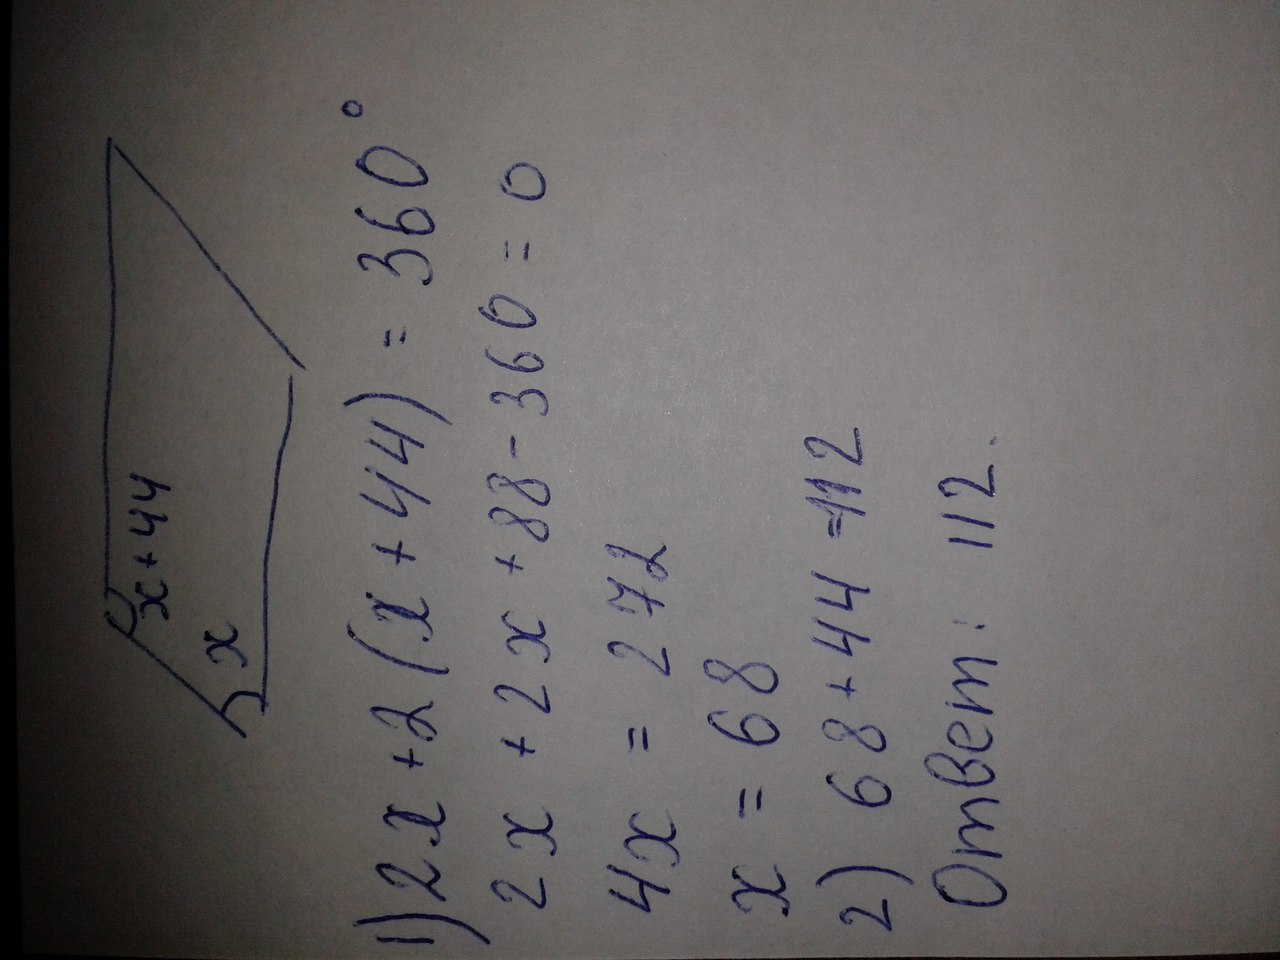 x+44
x
1) 2x+2(x+44) = 360°
2x+2x+88-360=0
4x = 272
x = 68
2) 68+44=112
Ответ: 112.